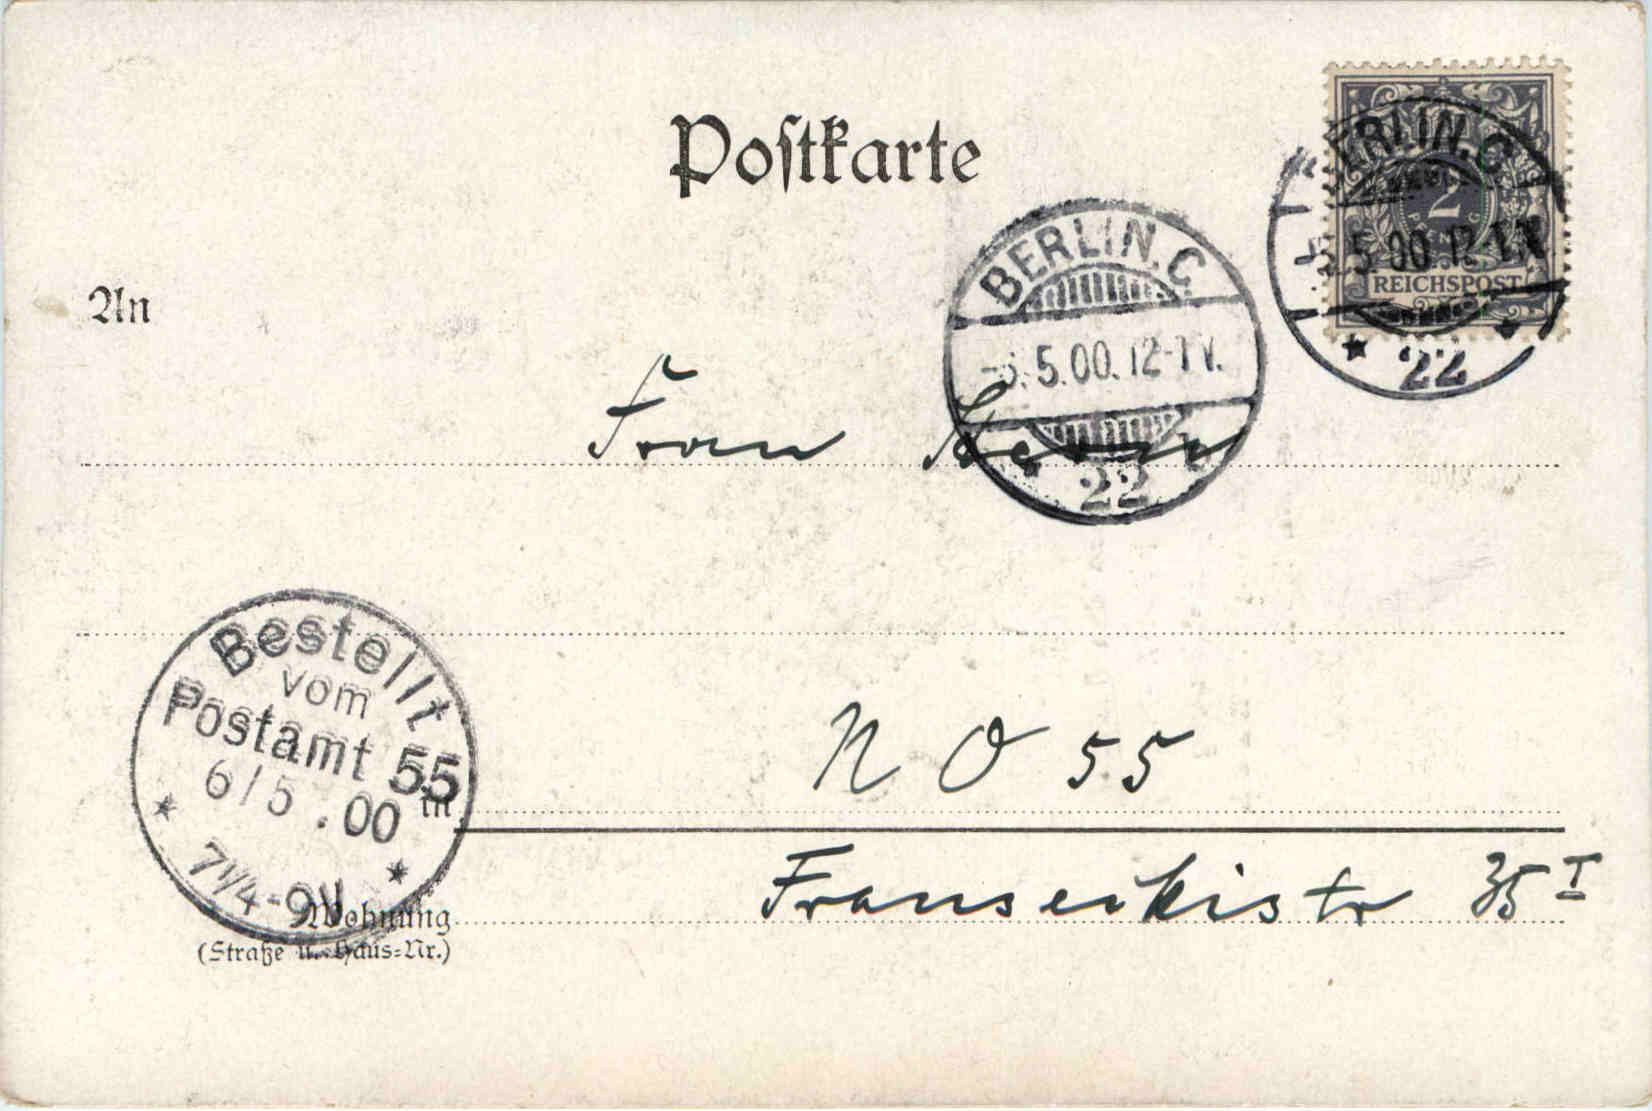 Postkarte
BERLIN. C.
5.00.12-1 V.
22
2
REICHSPOST
BERLIN. C.
5.00.12-1 V.
22
An
Frau
Bestellt
vom
Postamt 55
6/5.00
7 1/4-9V
N O 55
in
Franseckistr 35 I
Wohnung
(Straße u. Haus-Nr.)